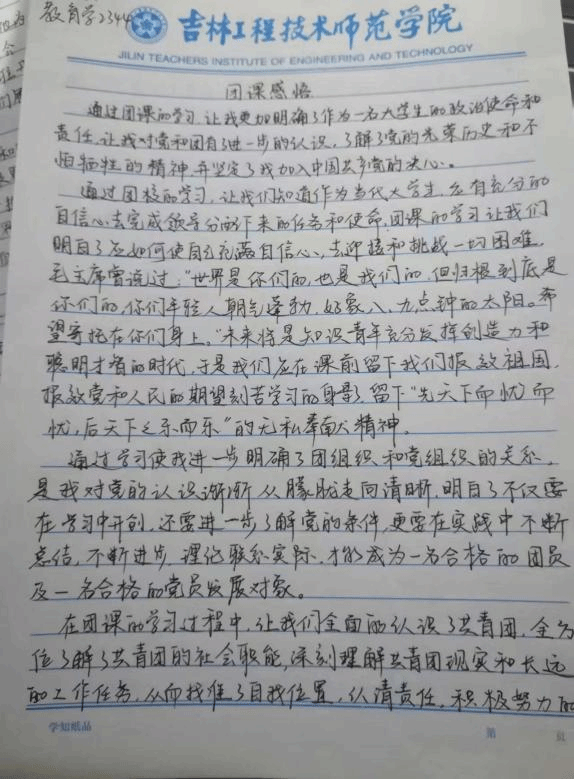 教育学2344
吉林工程技术师范学院
JILIN TEACHERS INSTITUTE OF ENGINEERING AND TECHNOLOGY
团课感悟
通过团课的学习,让我更加明确了作为一名大学生的政治使命和
责任,让我对党和团有了进一步的认识,了解了党的光荣历史和不
怕牺牲的精神,并坚定了我加入中国共产党的决心。
通过团校的学习,让我们知道作为当代大学生,应有充分的
自信心去完成领导分配下来的任务和使命,团课的学习让我们
明白了应如何使自己充满自信心、去迎接和挑战一切困难,
毛主席曾说过:"世界是你们的,也是我们的,但归根到底是
你们的,你们年轻人朝气蓬勃,好象八、九点钟的太阳。希
望寄托在你们身上。"未来将是知识青年充分发挥创造力和
聪明才智的时代,于是我们应在课前留下我们报效祖国,
报效党和人民的期望刻苦学习的身影,留下"先天下而忧而
忧,后天下之乐而乐"的无私奉献精神。
通过学习使我进一步明确了团组织和党组织的关系,
是我对党的认识渐渐从朦胧走向清晰,明白了不仅要
在学习中开创,还要进一步了解党的条件,更要在实践中不断
总结,不断进步,理论联系实际,才能成为一名合格的团员
及一名合格的党员发展对象。
在团课的学习过程中,让我们全面的认识了共青团,全方
位了解了共青团的社会职能,深刻理解共青团现实和长远
的工作任务,从而找准了自我位置,认清责任,积极努力的
学知纸品
第 页